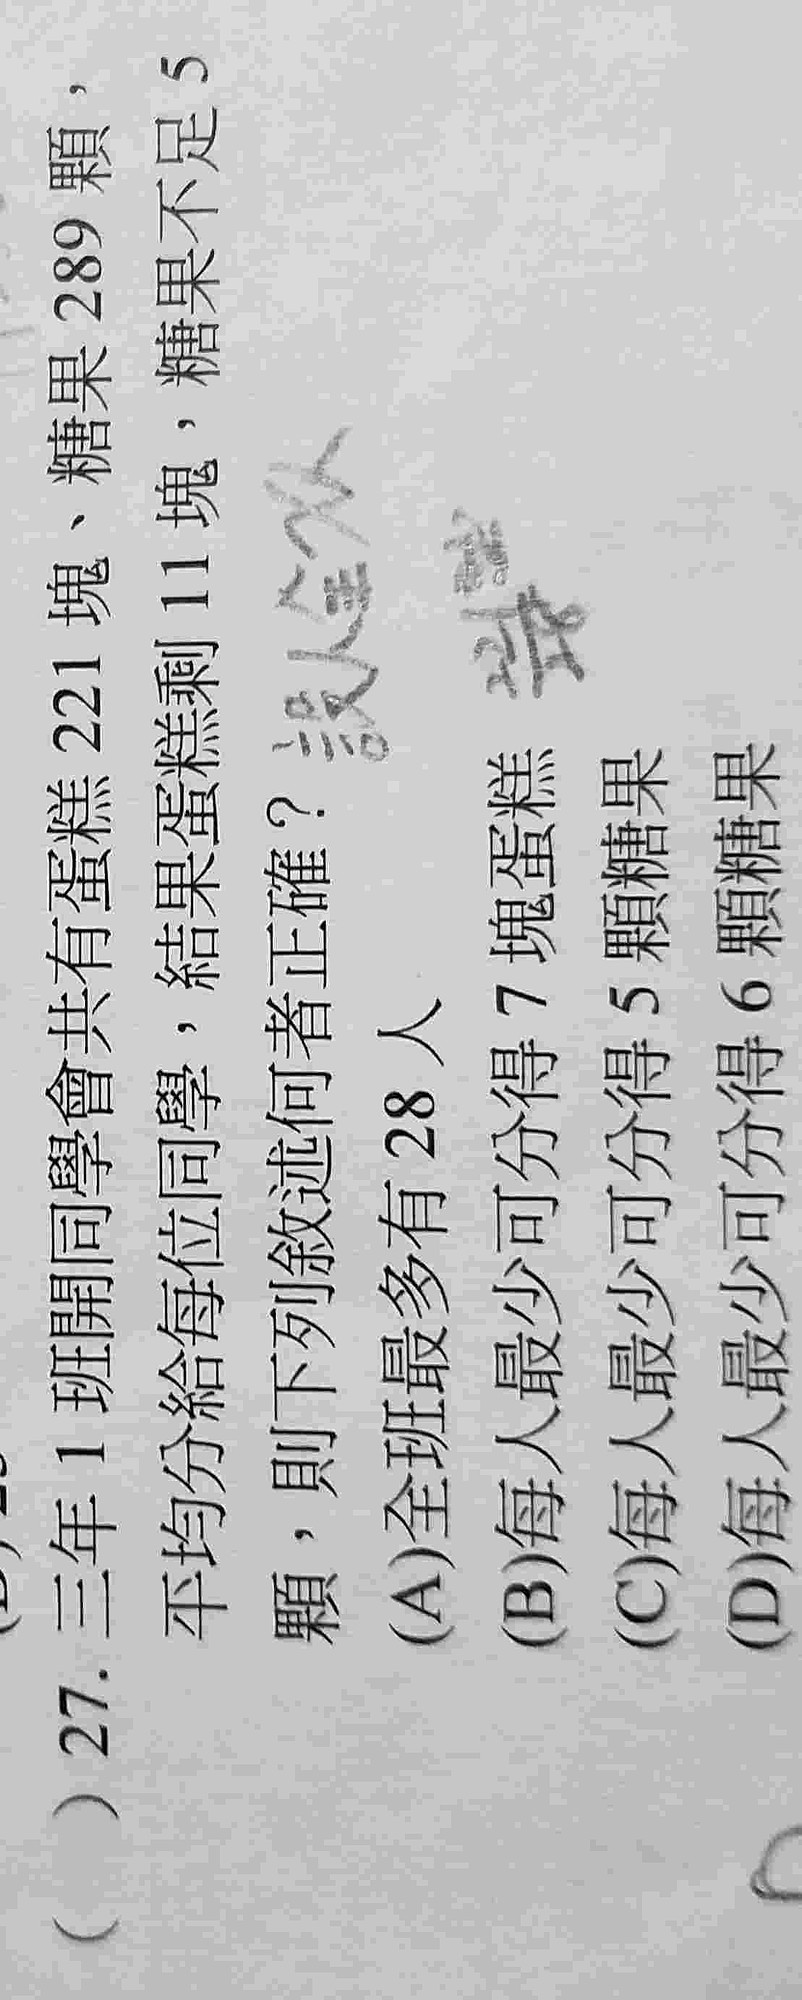 (　) 27. 三年 1 班開同學會共有蛋糕 221 塊、糖果 289 顆，
平均分給每位同學，結果蛋糕剩 11 塊，糖果不足 5
顆，則下列敘述何者正確？
(A)全班最多有 28 人
(B)每人最少可分得 7 塊蛋糕
(C)每人最少可分得 5 顆糖果
(D)每人最少可分得 6 顆糖果